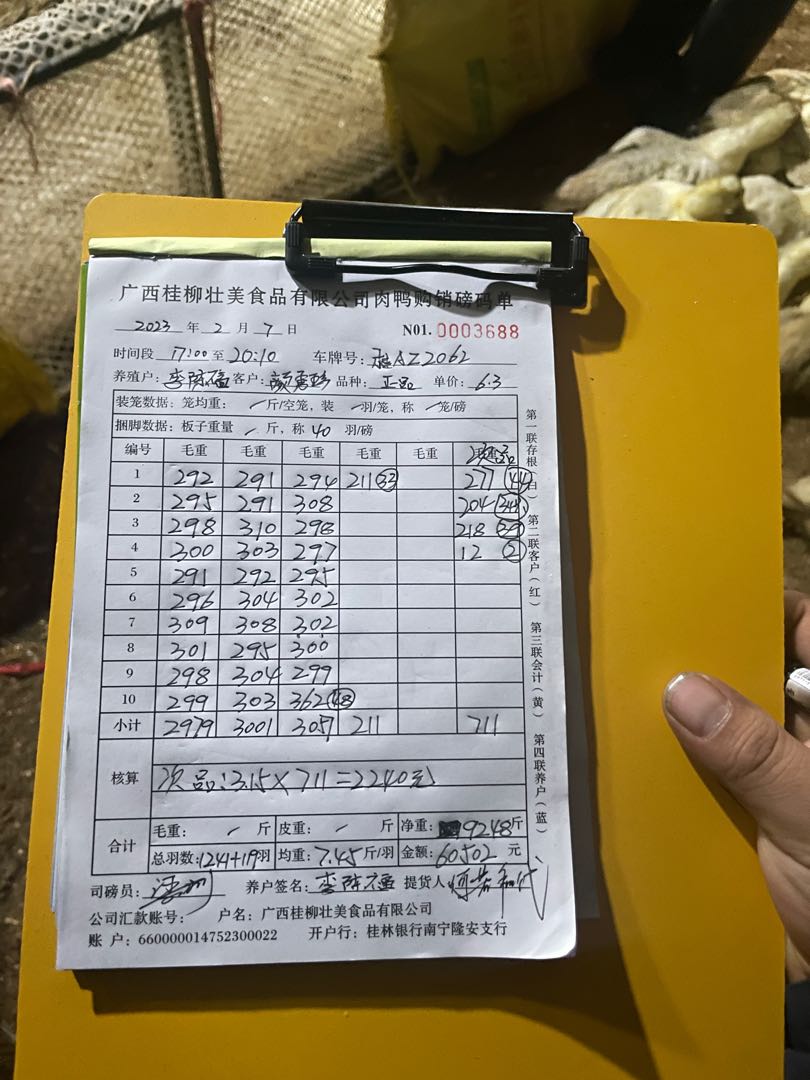 广西桂柳壮美食品有限公司肉鸭购销磅码单
2023 年 2 月 7 日 N01. 0003688
时间段 17:00 至 20:10 车牌号: 桂AZ2062
养殖户: 李 客户: 品种: 正品 单价: 6.3
装笼数据: 笼均重: / 斤/空笼, 装 / 羽/笼, 称 / 笼/磅
捆脚数据: 板子重量 / 斤, 称 40 羽/磅
编号 毛重 毛重 毛重 毛重 毛重 次品
1 292 291 294 211 33 277 44
2 295 291 308 204 34
3 298 310 298 218 39
4 300 303 297 12 2
5 291 292 295
6 296 304 302
7 309 308 302
8 301 295 300
9 298 304 299
10 299 303 362 48
小计 2979 3001 3057 211 711
核算 次品: 3.15×711=2240元
合计 毛重: / 斤 皮重: / 斤 净重: 9248斤
总羽数: 1241+119羽 均重: 7.45斤/羽 金额: 60502 元
司磅员: 养户签名: 李 提货人 代
公司汇款账号: 户名: 广西桂柳壮美食品有限公司
账 户: 660000014752300022 开户行: 桂林银行南宁隆安支行
第一联存根(白) 第二联客户(红) 第三联会计(黄) 第四联养户(蓝)